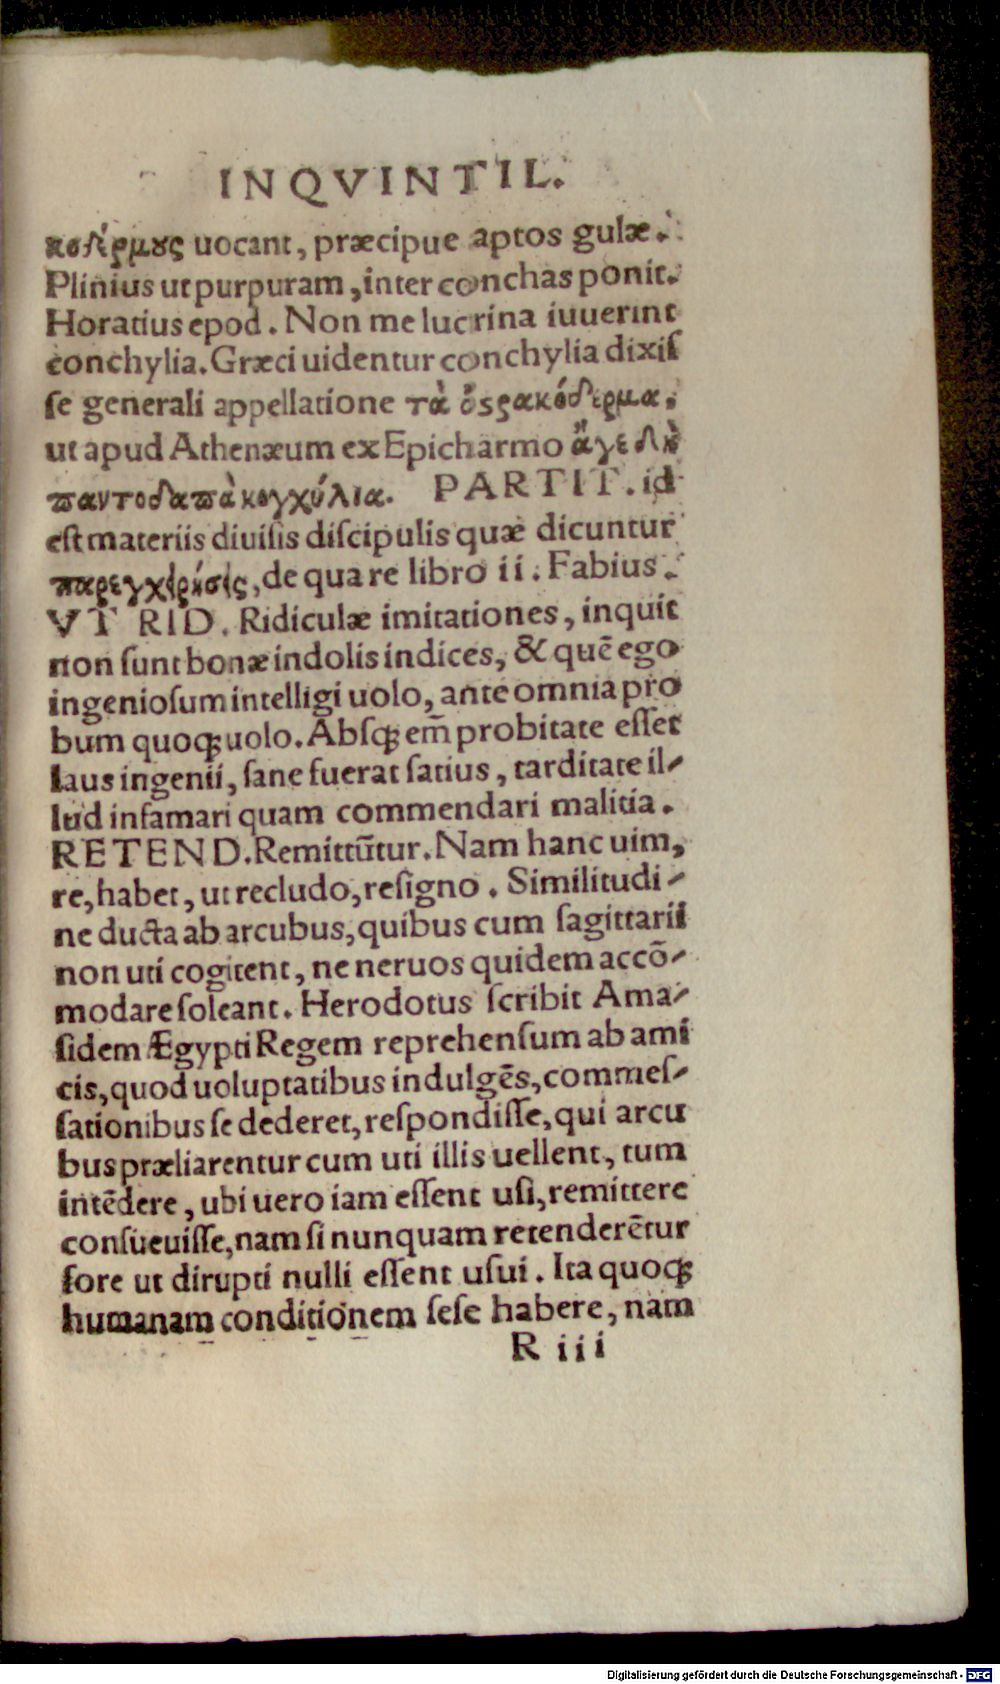 INQVINTIL.
κοδέρμους uocant, præcipue aptos gulæ.
Plinius ut purpuram, inter conchas ponit.
Horatius epod. Non me lucrina iuuerint
conchylia. Græci uidentur conchylia dixiſ
ſe generali appellatione τὰ ὀςρακόδερμα.
ut apud Athenæum ex Epicharmo ἄγε δὴ
παντοδαπὰ κογχύλια. PARTIT. id
eſt materiis diuiſis diſcipulis quæ dicuntur
παρεγχείρησις, de qua re libro ii. Fabius.
VT RID. Ridiculæ imitationes, inquit
non ſunt bonæ indolis indices, & quē ego
ingenioſum intelligi uolo, ante omnia pro
bum quoq; uolo. Abſq; em̄ probitate eſſet
laus ingenii, ſane fuerat ſatius, tarditate il-
lud infamari quam commendari malitia.
RETEND. Remittūtur. Nam hanc uim,
re, habet, ut recludo, reſigno. Similitudi-
ne ducta ab arcubus, quibus cum ſagittarii
non uti cogitent, ne neruos quidem accō-
modare ſoleant. Herodotus ſcribit Ama-
ſidem Ægypti Regem reprehenſum ab ami
cis, quod uoluptatibus indulgēs, commeſ-
ſationibus ſe dederet, reſpondiſſe, qui arcu
bus præliarentur cum uti illis uellent, tum
intēdere, ubi uero iam eſſent uſi, remittere
conſueuiſſe, nam ſi nunquam retenderētur
fore ut dirupti nulli eſſent uſui. Ita quoq;
humanam conditionem ſeſe habere, nam
R iii
Digitalisierung gefördert durch die Deutsche Forschungsgemeinschaft - DFG